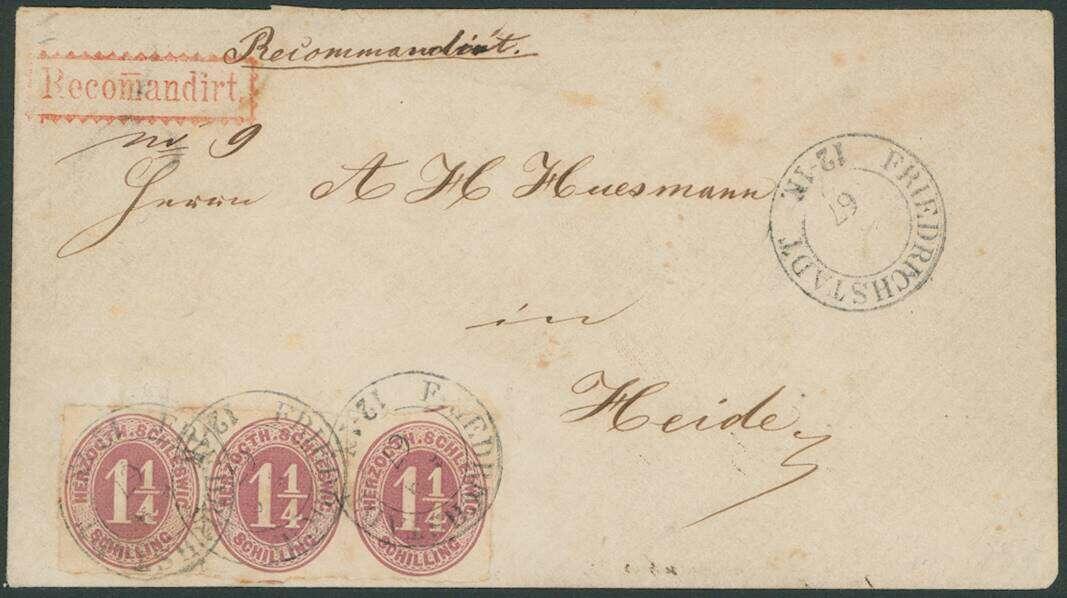 Recommandirt.
Recom̅andirt.
No 9
Herrn A H Huesmann
in
Heide
FRIEDRICHSTADT
12-1N.
67
HERZOGTH. SCHLESWIG
1 1/4
SCHILLING
HERZOGTH. SCHLESWIG
1 1/4
SCHILLING
HERZOGTH. SCHLESWIG
1 1/4
SCHILLING